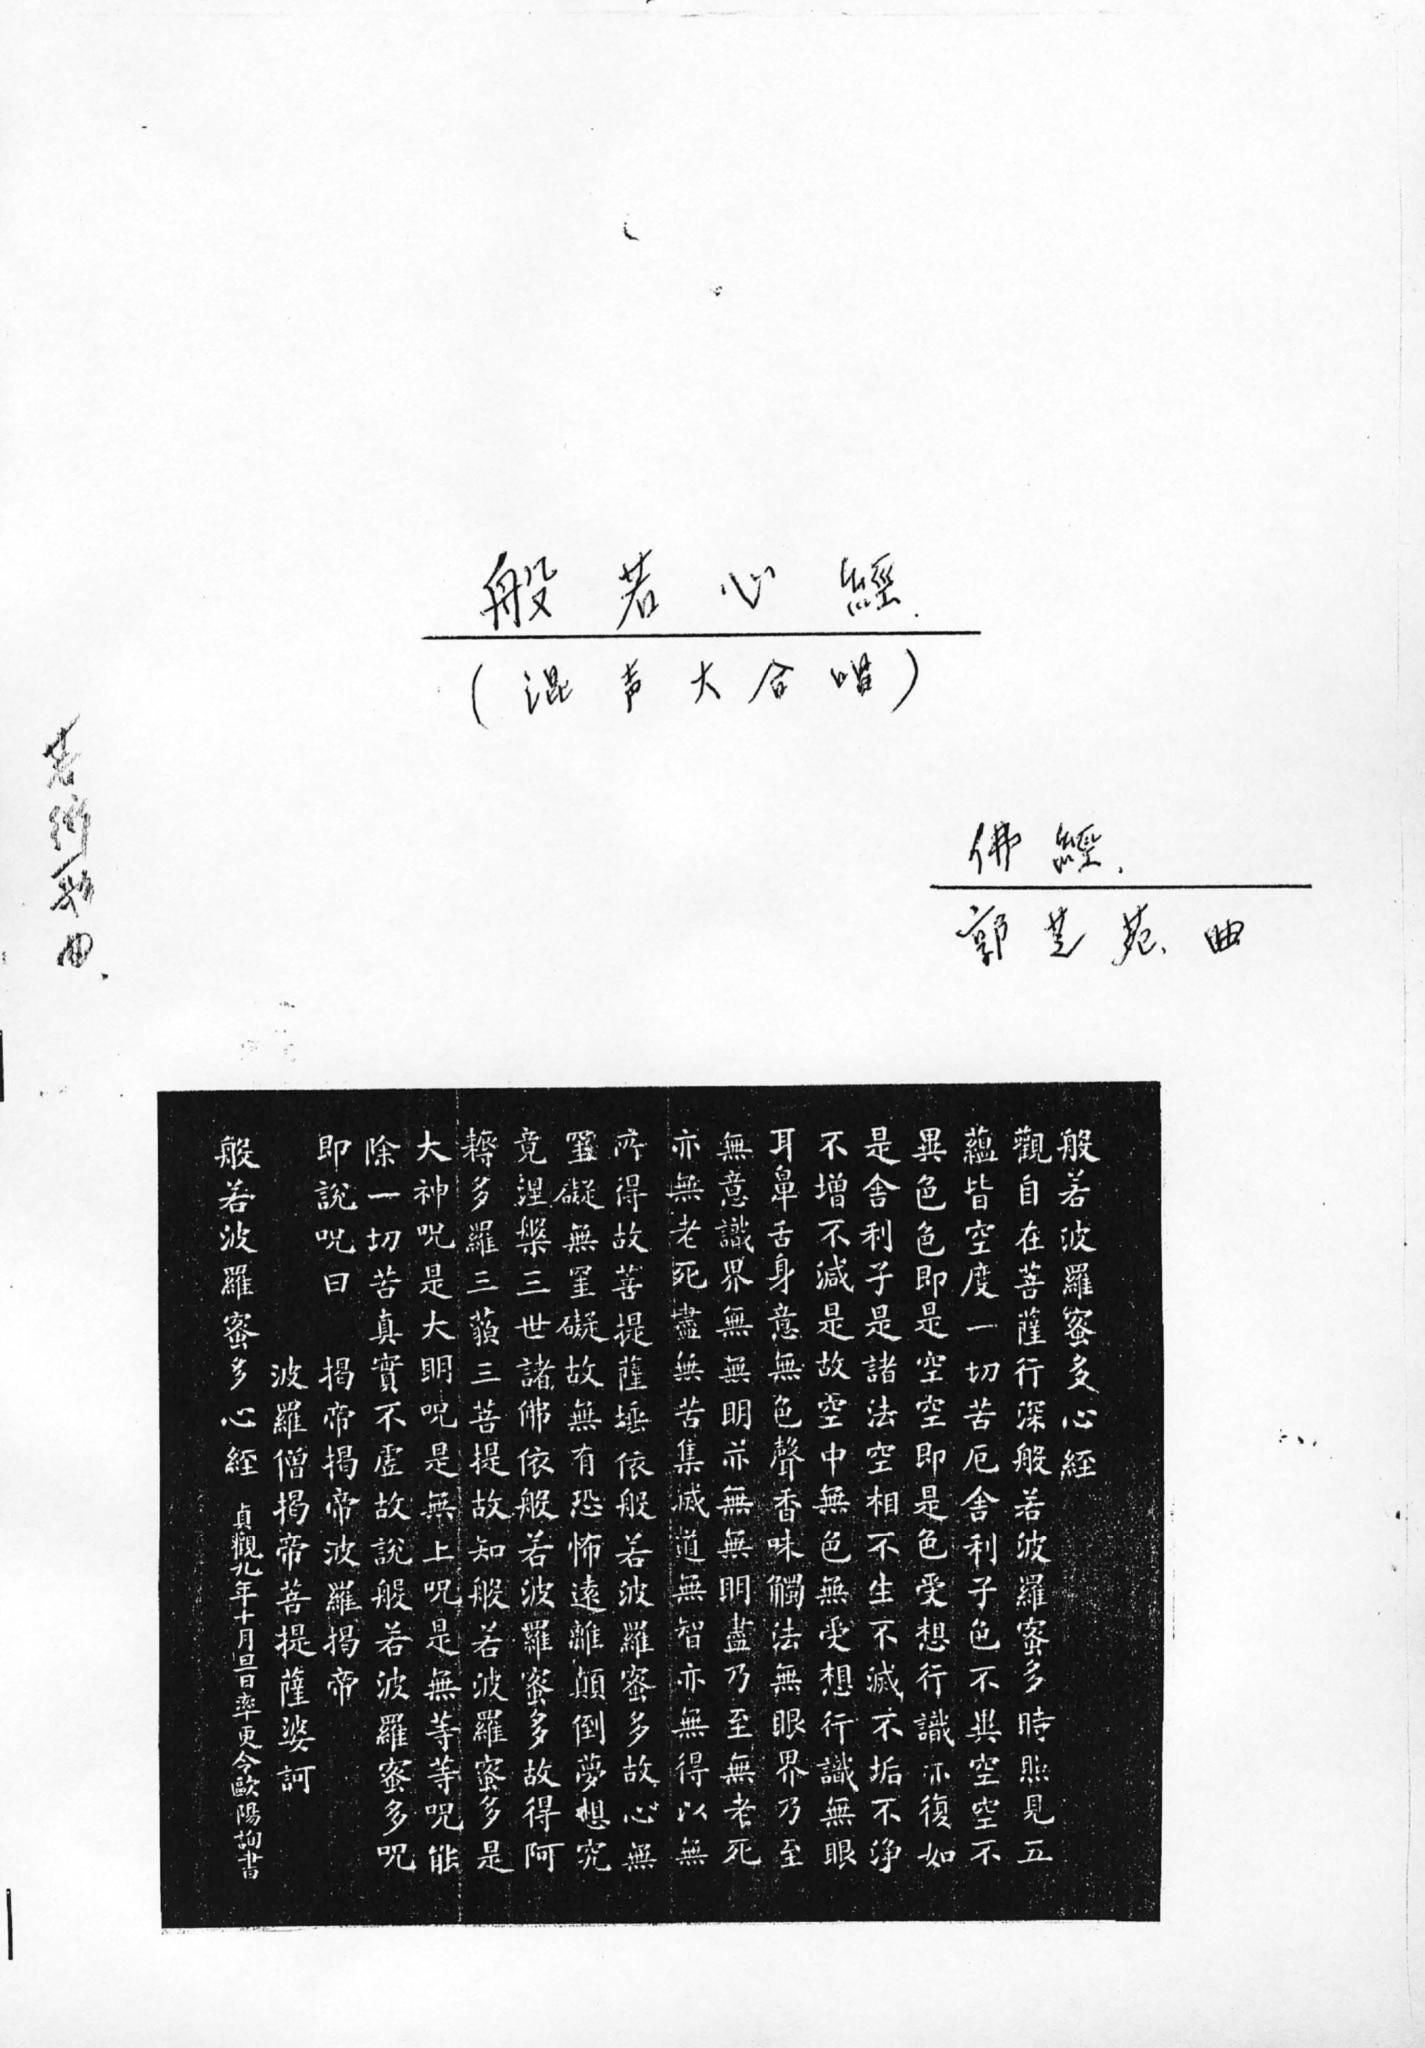 般若心經.
(混声大合唱)
佛經.
郭芝苑.曲
芸術歌曲.
般若波羅蜜多心経
觀自在菩薩行深般若波羅蜜多時照見五
蘊皆空度一切苦厄舍利子色不異空空不
異色色即是空空即是色受想行識亦復如
是舍利子是諸法空相不生不滅不垢不淨
不增不減是故空中無色無受想行識無眼
耳鼻舌身意無色聲香味觸法無眼界乃至
無意識界無無明亦無無明盡乃至無老死
亦無老死盡無苦集滅道無智亦無得以無
所得故菩提薩埵依般若波羅蜜多故心無
罣礙無罣礙故無有恐怖遠離顛倒夢想究
竟涅槃三世諸佛依般若波羅蜜多故得阿
耨多羅三藐三菩提故知般若波羅蜜多是
大神呪是大明呪是無上呪是無等等呪能
除一切苦真實不虛故說般若波羅蜜多呪
即說呪曰 揭帝揭帝波羅揭帝
波羅僧揭帝菩提薩婆訶
般若波羅蜜多心経 貞觀九年十月旦日率更令歐陽詢書